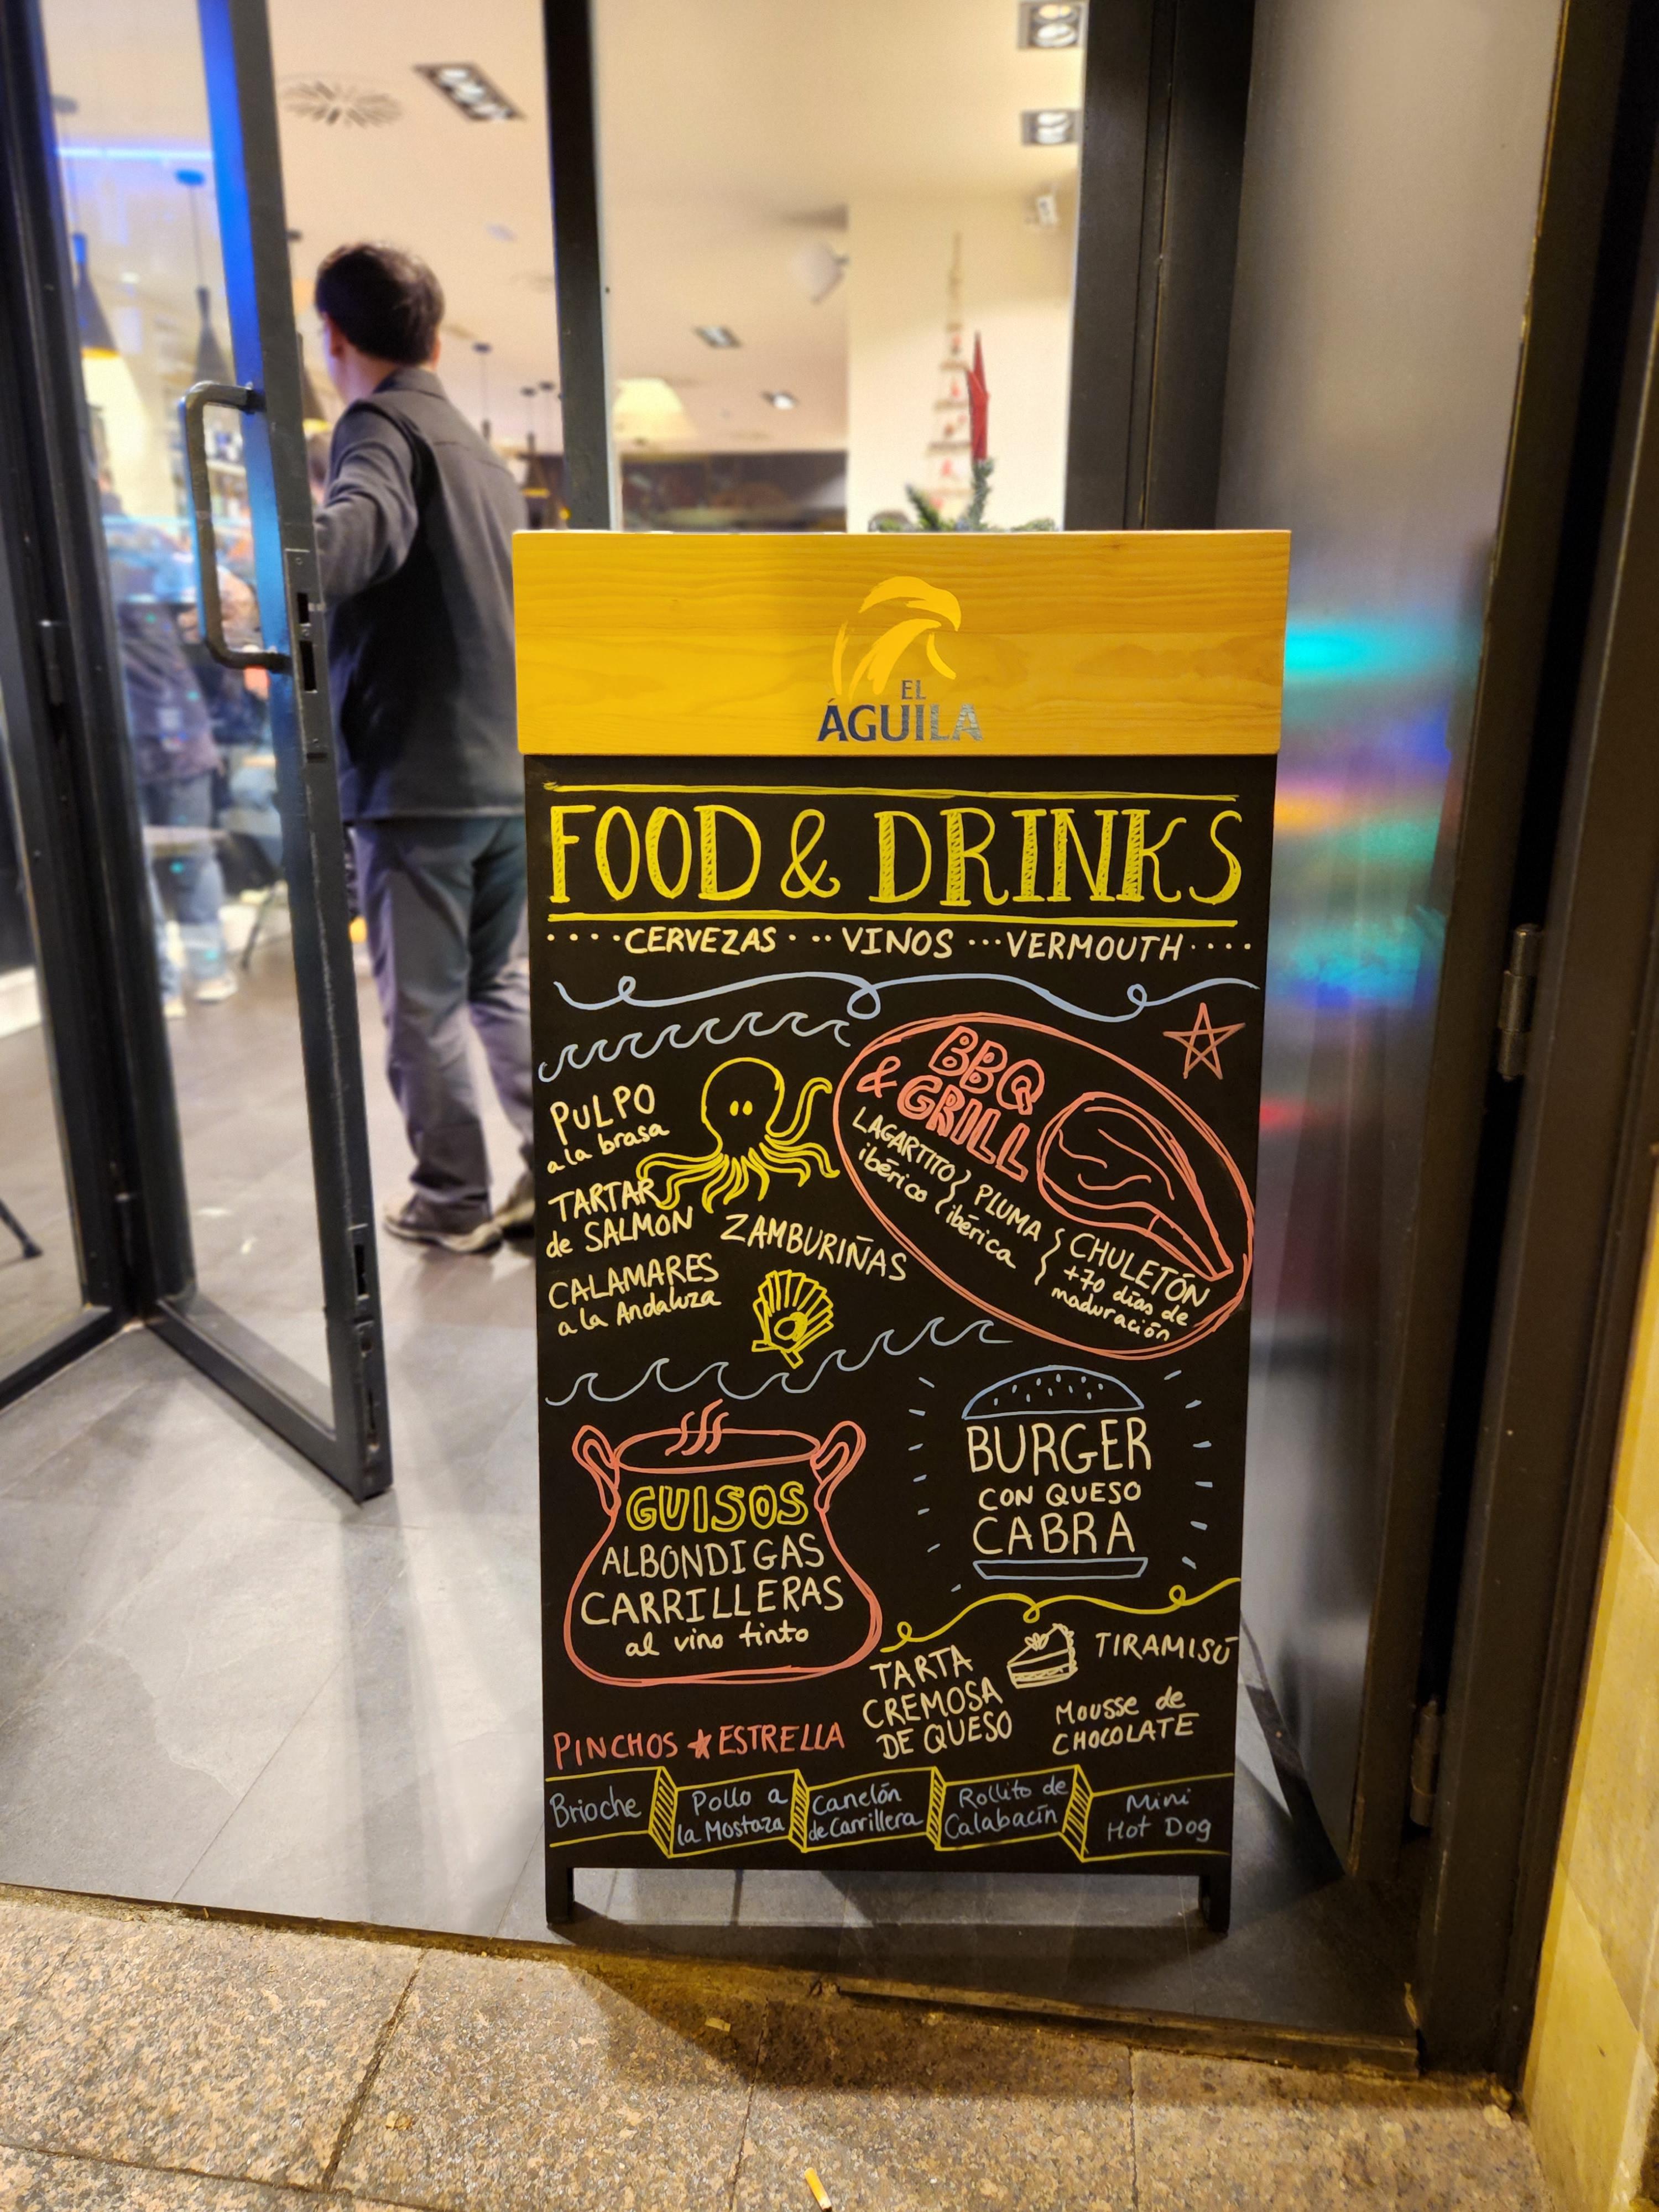 EL
ÁGUILA
FOOD & DRINKS
CERVEZAS VINOS VERMOUTH
PULPO
a la brasa
TARTAR
de SALMON
CALAMARES
a la Andaluza
ZAMBURIÑAS
BBQ
& GRILL
LAGARTITO
ibérico
PLUMA
ibérica
CHULETÓN
+70 días de
maduración
GUISOS
ALBONDIGAS
CARRILLERAS
al vino tinto
BURGER
CON QUESO
CABRA
TARTA
CREMOSA
DE QUESO
TIRAMISÚ
Mousse de
CHOCOLATE
PINCHOS ★ ESTRELLA
Brioche
Pollo a
la Mostaza
Canelón
de Carrillera
Rollito de
Calabacín
Mini
Hot Dog